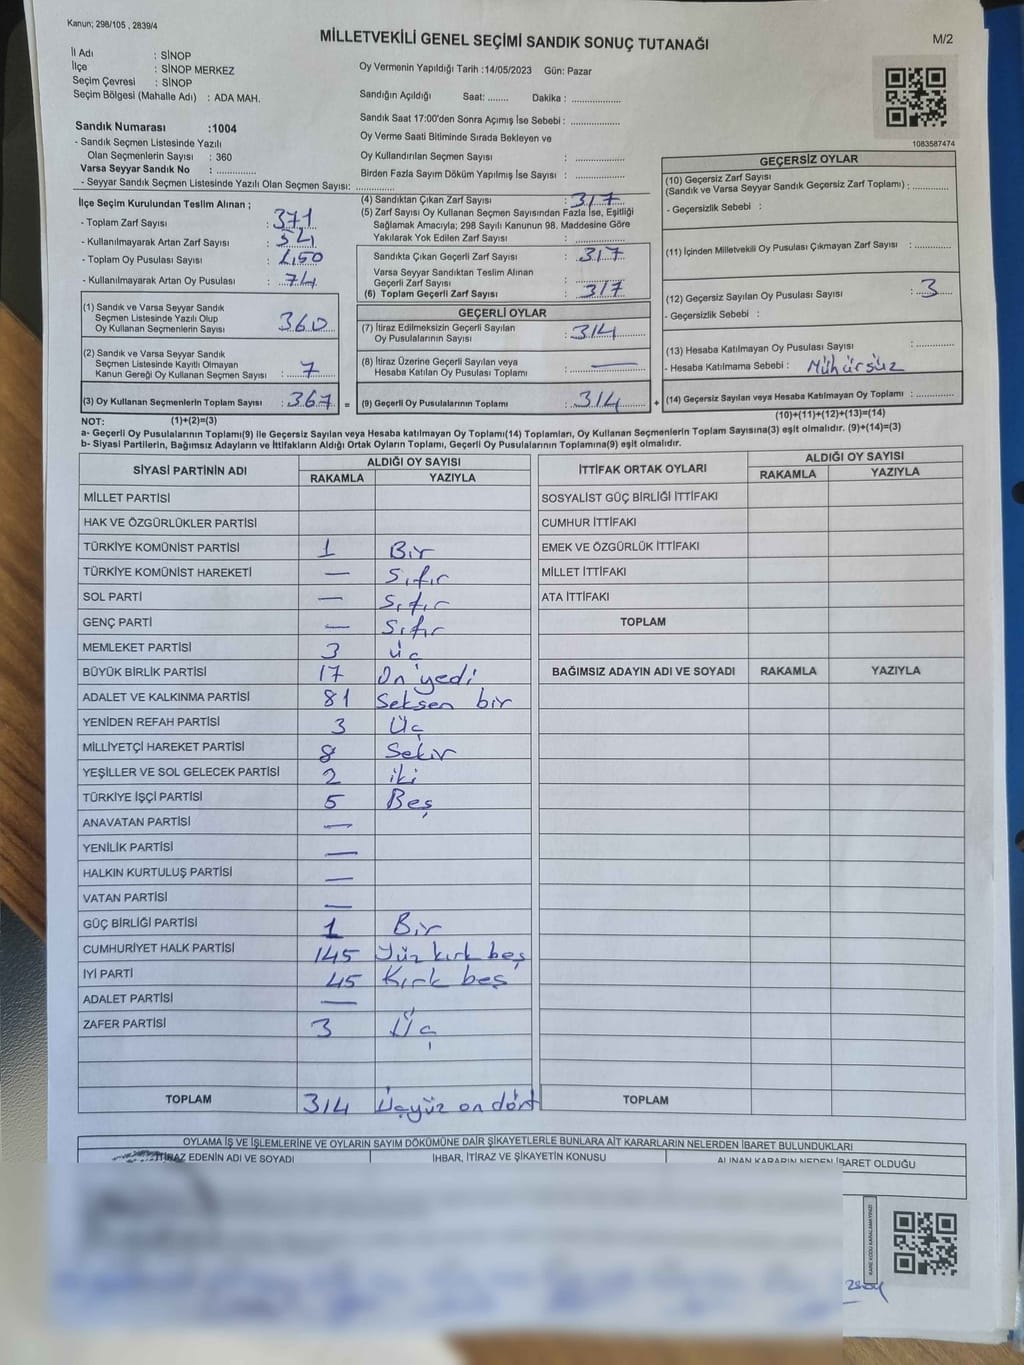 Kanun; 298/105 , 2839/4
MİLLETVEKİLİ GENEL SEÇİMİ SANDIK SONUÇ TUTANAĞI
M/2
İl Adı : SİNOP
İlçe : SİNOP MERKEZ
Seçim Çevresi : SİNOP
Seçim Bölgesi (Mahalle Adı) : ADA MAH.
Sandık Numarası :1004
- Sandık Seçmen Listesinde Yazılı
Olan Seçmenlerin Sayısı : 360
Varsa Seyyar Sandık No : ............
- Seyyar Sandık Seçmen Listesinde Yazılı Olan Seçmen Sayısı: ............
Oy Vermenin Yapıldığı Tarih :14/05/2023 Gün: Pazar
Sandığın Açıldığı Saat: ........ Dakika : ..................
Sandık Saat 17:00'den Sonra Açımış İse Sebebi : ..................
Oy Verme Saati Bitiminde Sırada Bekleyen ve
Oy Kullandırılan Seçmen Sayısı : ..................
Birden Fazla Sayım Döküm Yapılmış İse Sayısı : ..................
1083587474
İlçe Seçim Kurulundan Teslim Alınan ;
- Toplam Zarf Sayısı : 371
- Kullanılmayarak Artan Zarf Sayısı : 54
- Toplam Oy Pusulası Sayısı :
- Kullanılmayarak Artan Oy Pusulası : 74
(1) Sandık ve Varsa Seyyar Sandık
Seçmen Listesinde Yazılı Olup
Oy Kullanan Seçmenlerin Sayısı 360
(2) Sandık ve Varsa Seyyar Sandık
Seçmen Listesinde Kayıtlı Olmayan
Kanun Gereği Oy Kullanan Seçmen Sayısı : 7
(3) Oy Kullanan Seçmenlerin Toplam Sayısı : 367 =
(4) Sandıktan Çıkan Zarf Sayısı : 317
(5) Zarf Sayısı Oy Kullanan Seçmen Sayısından Fazla İse, Eşitliği
Sağlamak Amacıyla; 298 Sayılı Kanunun 98. Maddesine Göre
Yakılarak Yok Edilen Zarf Sayısı : ............
Sandıkta Çıkan Geçerli Zarf Sayısı : 317
Varsa Seyyar Sandıktan Teslim Alınan
Geçerli Zarf Sayısı :
(6) Toplam Geçerli Zarf Sayısı : 317
GEÇERLİ OYLAR
(7) İtiraz Edilmeksizin Geçerli Sayılan
Oy Pusulalarının Sayısı : 314
(8) İtiraz Üzerine Geçerli Sayılan veya
Hesaba Katılan Oy Pusulası Toplamı : —
(9) Geçerli Oy Pusulalarının Toplamı : 314 +
GEÇERSİZ OYLAR
(10) Geçersiz Zarf Sayısı
(Sandık ve Varsa Seyyar Sandık Geçersiz Zarf Toplamı) : ............
- Geçersizlik Sebebi :
(11) İçinden Milletvekili Oy Pusulası Çıkmayan Zarf Sayısı : ............
(12) Geçersiz Sayılan Oy Pusulası Sayısı : 3
- Geçersizlik Sebebi :
(13) Hesaba Katılmayan Oy Pusulası Sayısı : ............
- Hesaba Katılmama Sebebi : Mühürsüz
(14) Geçersiz Sayılan veya Hesaba Katılmayan Oy Toplamı : ............
NOT: (1)+(2)=(3) (10)+(11)+(12)+(13)=(14)
a- Geçerli Oy Pusulalarının Toplamı(9) ile Geçersiz Sayılan veya Hesaba katılmayan Oy Toplamı(14) Toplamları, Oy Kullanan Seçmenlerin Toplam Sayısına(3) eşit olmalıdır. (9)+(14)=(3)
b- Siyasi Partilerin, Bağımsız Adayların ve İttifakların Aldığı Ortak Oyların Toplamı, Geçerli Oy Pusulalarının Toplamına(9) eşit olmalıdır.
SİYASİ PARTİNİN ADI ALDIĞI OY SAYISI
RAKAMLA YAZIYLA
MİLLET PARTİSİ
HAK VE ÖZGÜRLÜKLER PARTİSİ
TÜRKİYE KOMÜNİST PARTİSİ 1 Bir
TÜRKİYE KOMÜNİST HAREKETİ — Sıfır
SOL PARTİ — Sıfır
GENÇ PARTİ — Sıfır
MEMLEKET PARTİSİ 3 üç
BÜYÜK BİRLİK PARTİSİ 17 On yedi
ADALET VE KALKINMA PARTİSİ 81 Seksen bir
YENİDEN REFAH PARTİSİ 3 Üç
MİLLİYETÇİ HAREKET PARTİSİ 8 Sekiz
YEŞİLLER VE SOL GELECEK PARTİSİ 2 iki
TÜRKİYE İŞÇİ PARTİSİ 5 Beş
ANAVATAN PARTİSİ —
YENİLİK PARTİSİ —
HALKIN KURTULUŞ PARTİSİ —
VATAN PARTİSİ —
GÜÇ BİRLİĞİ PARTİSİ 1 Bir
CUMHURİYET HALK PARTİSİ 145 Yüz kırk beş
İYİ PARTİ 45 Kırk beş
ADALET PARTİSİ —
ZAFER PARTİSİ 3 Üç
TOPLAM 314 Üçyüz on dört
İTTİFAK ORTAK OYLARI ALDIĞI OY SAYISI
RAKAMLA YAZIYLA
SOSYALİST GÜÇ BİRLİĞİ İTTİFAKI
CUMHUR İTTİFAKI
EMEK VE ÖZGÜRLÜK İTTİFAKI
MİLLET İTTİFAKI
ATA İTTİFAKI
TOPLAM
BAĞIMSIZ ADAYIN ADI VE SOYADI RAKAMLA YAZIYLA
TOPLAM
OYLAMA İŞ VE İŞLEMLERİNE VE OYLARIN SAYIM DÖKÜMÜNE DAİR ŞİKAYETLERLE BUNLARA AİT KARARLARIN NELERDEN İBARET BULUNDUKLARI
İTİRAZ EDENİN ADI VE SOYADI İHBAR, İTİRAZ VE ŞİKAYETİN KONUSU ALINAN KARARIN NEDEN İBARET OLDUĞU
KARE KODU KARALAMAYINIZ!